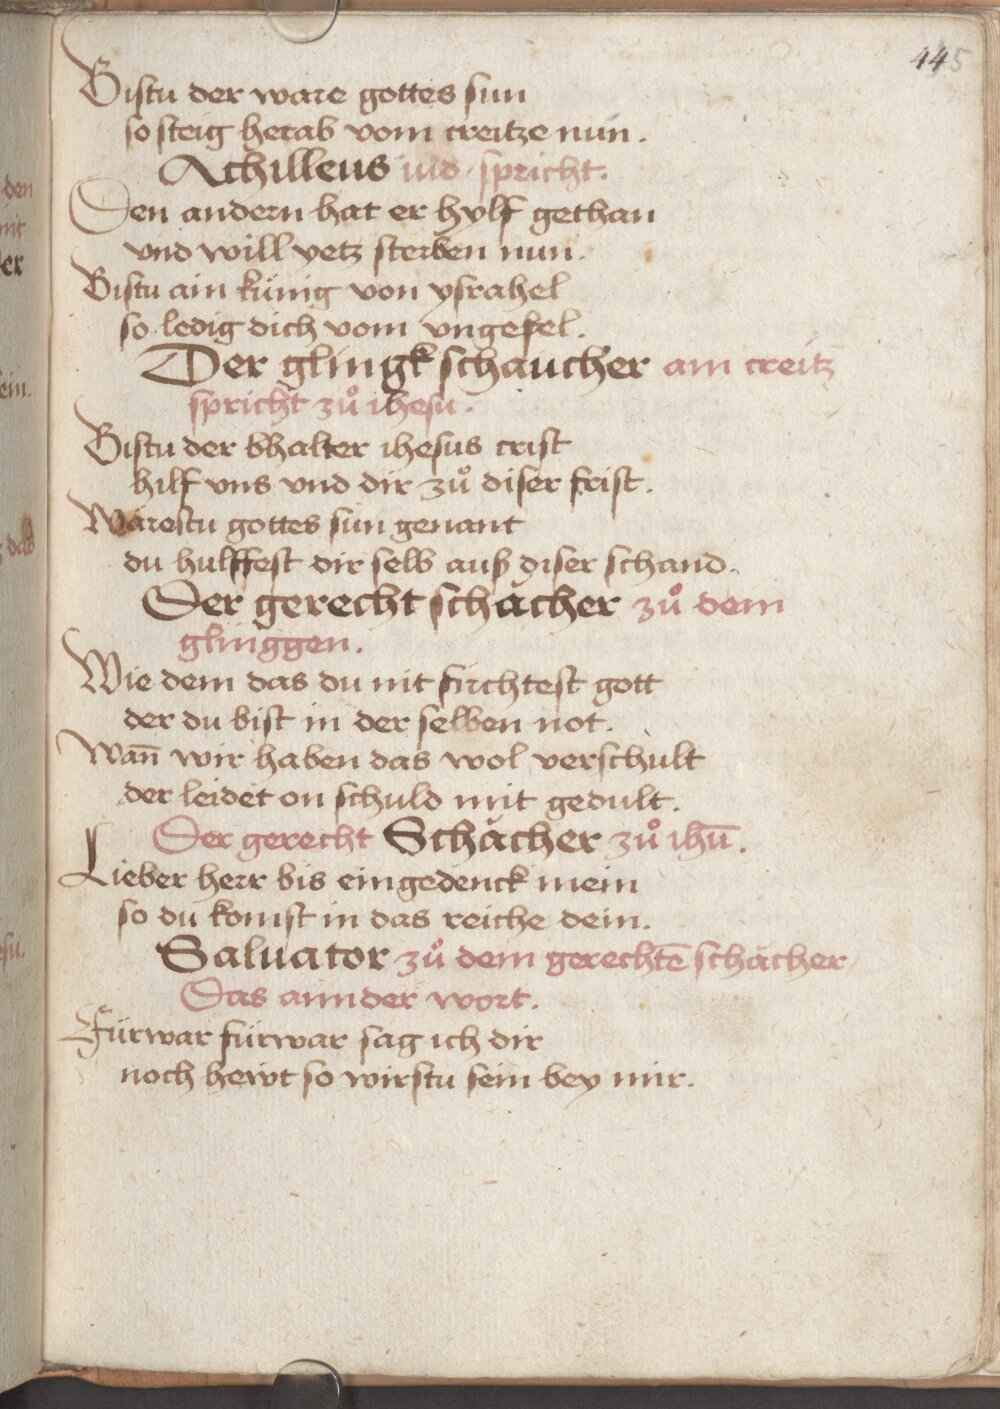 145
Bistu der ware gottes sun
so steig herab vom creitze nun.
Achilleus iud spricht.
Den andern hat er hylf gethan
vnd will yetz sterben nun.
Bistu ain künig von ysrahel
so ledig dich vom vngefel.
Der glingk schaucher am creitz
spricht zů ihesu.
Bistu der bhalter ihesus crist
hilf vns vnd dir zů diser frist.
Warestu gottes sun genant
du hulffest dir selb auß diser schand.
Der gerecht schächer zů dem
glinggen.
Wie dem das du nit firchtest gott
der du bist in der selben not.
Wan̄ wir haben das wol verschult
der leidet on schuld mit gedult.
Der gerecht Schächer zů ihū.
Lieber herr bis eingedenck mein
so du komst in das reiche dein.
Saluator zů dem gerechtē schächer
Das annder wort.
Fürwar fürwar sag ich dir
noch hewt so wirstu sein bey mir.